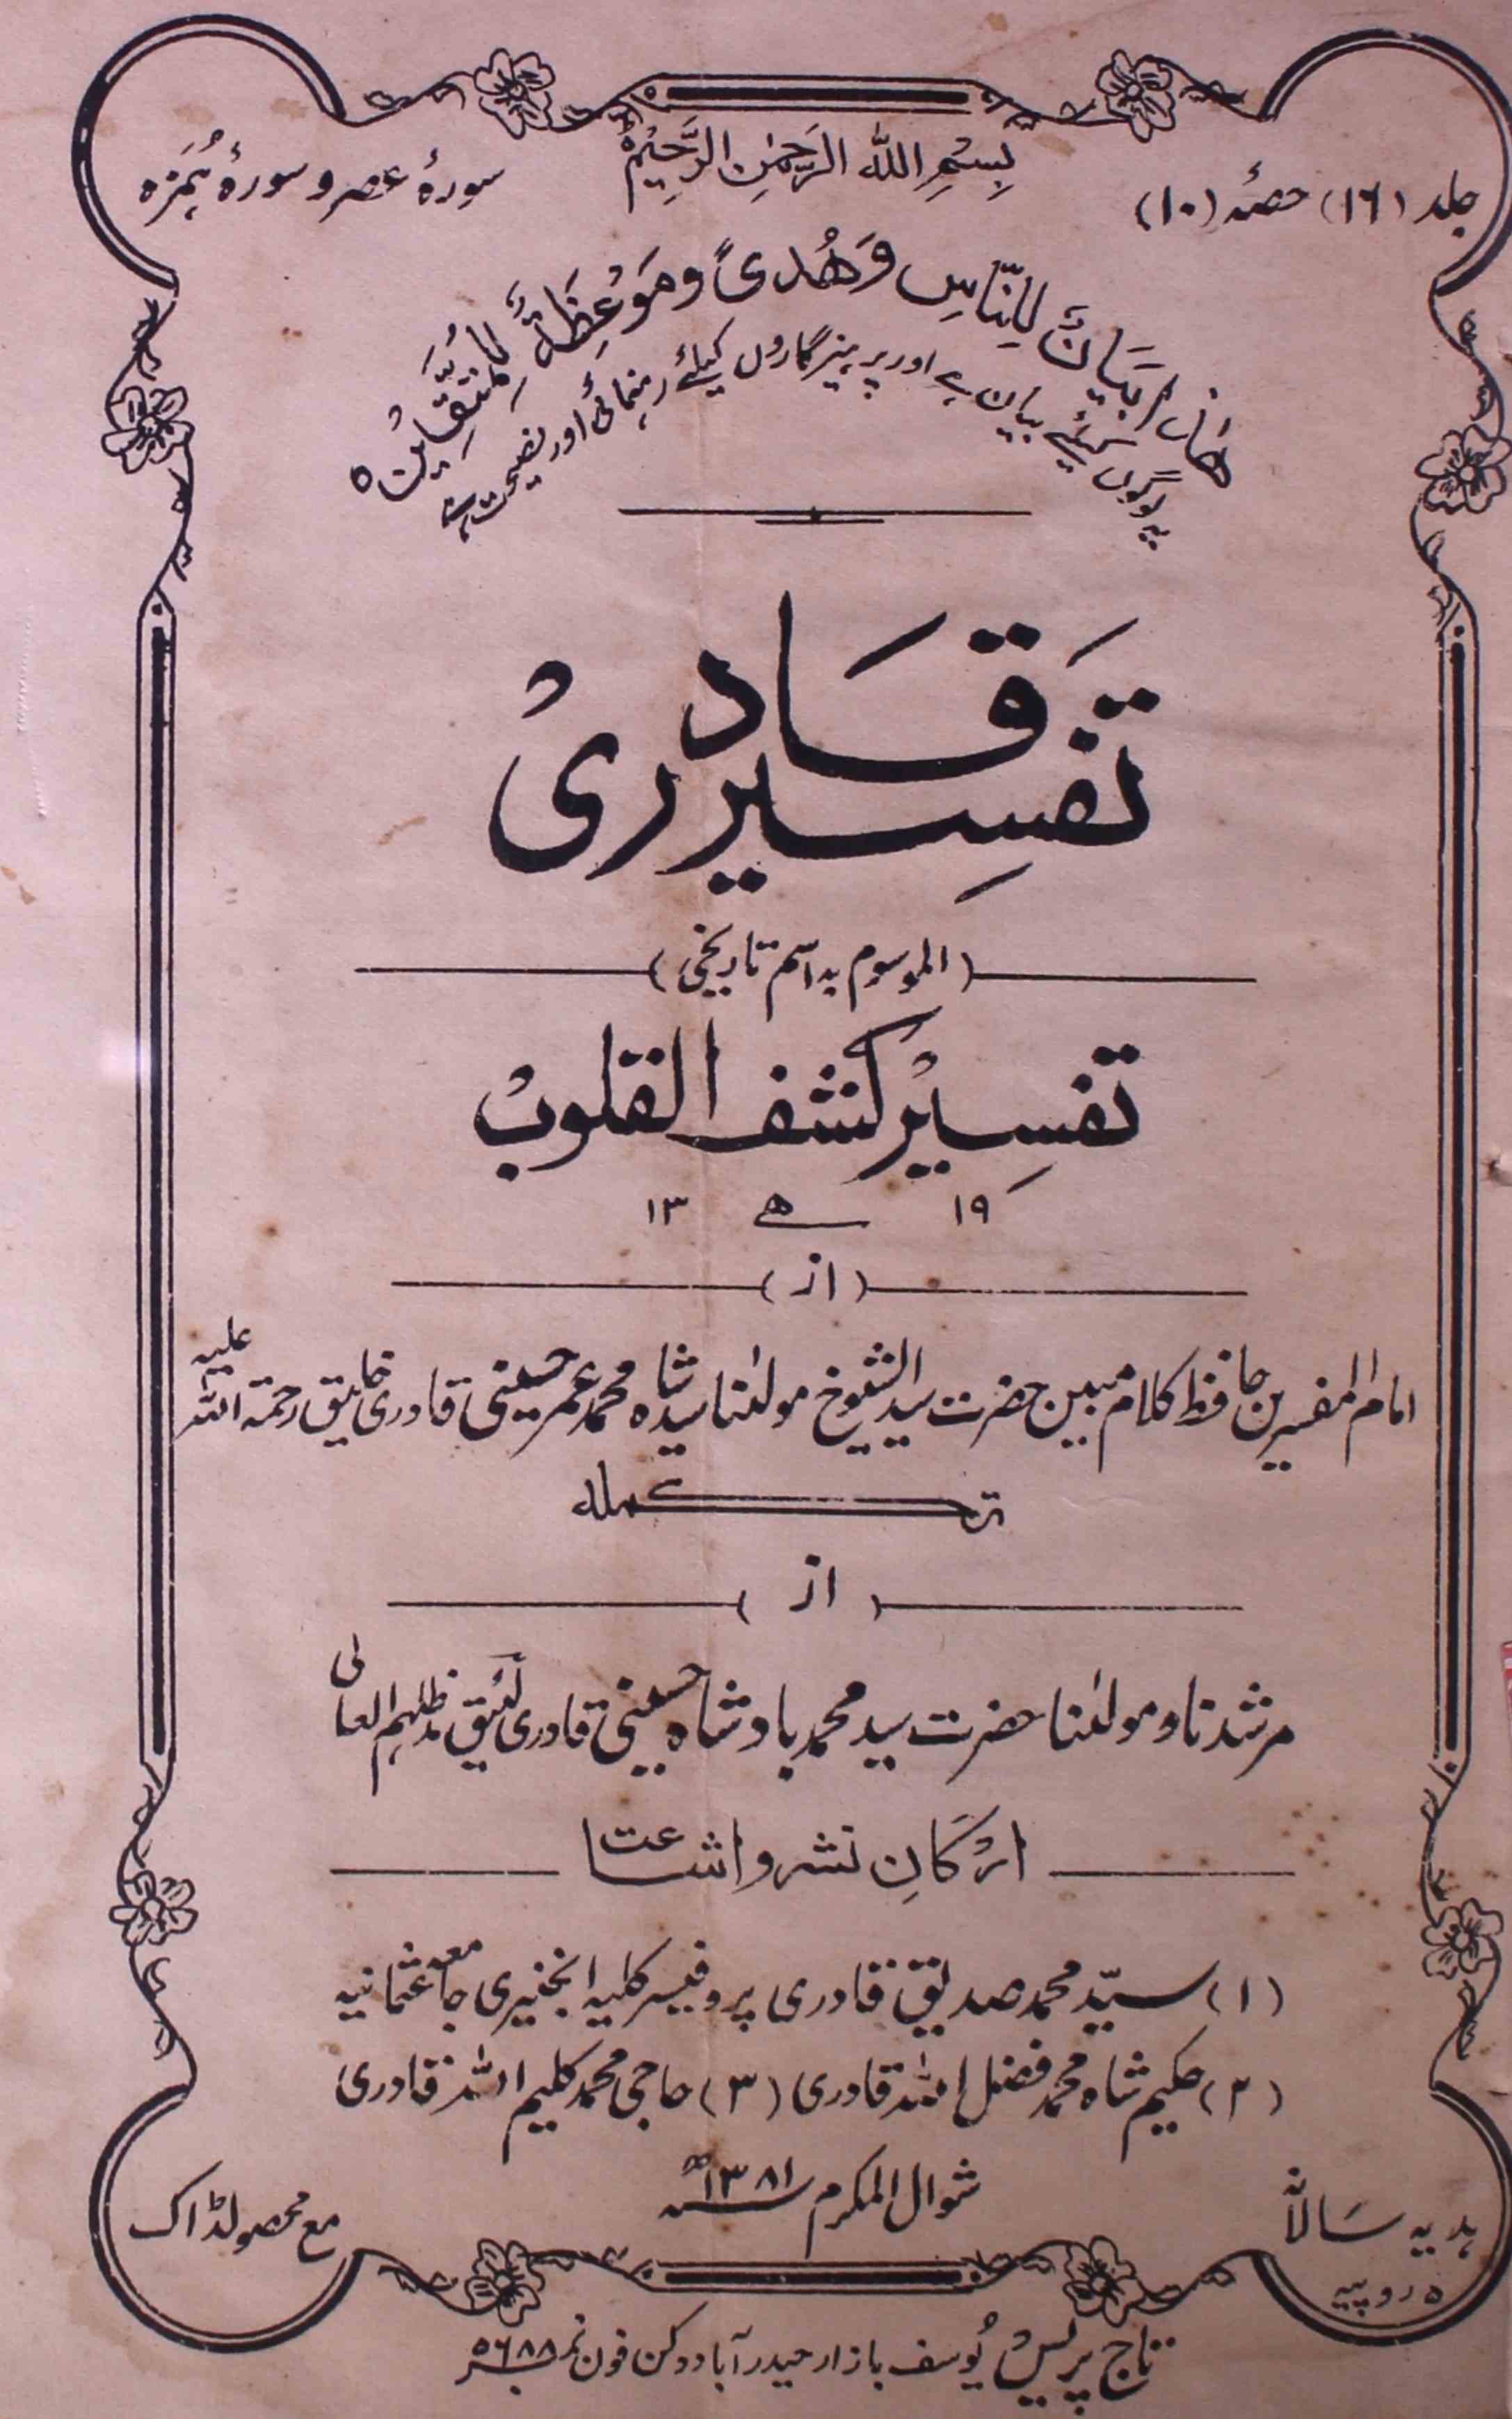 جلد (۱۶) حصۂ (۱۰)
بِسْمِ اللہِ الرَّحْمٰنِ الرَّحِیْمِ
سورۂ عصر و سورۂ ہُمَزہ
ھٰذَا بَیَانٌ لِلنَّاسِ وَھُدیً وَمَوْعِظَۃٌ لِلْمُتَّقِیْنَ ہ
یہ لوگوں کیلئے بیان ہے اور پرہیزگاروں کیلئے رہنمائی اور نصیحت ہے
تَفسِیر قَادری
(الموسوم بہ اسم تاریخی)
تفسِیرکشف القلوب
۱۹ ھ ۱۳
(از)
امام المفسرین حافظ کلام مبین حضرت سید الشیوخ مولٰنا سید شاہ محمد عمر حسینی قادری خلیق رحمۃ اللہ علیہ
تکملہ
(از)
مرشدنا و مولٰنا حضرت سید محمد بادشاہ حسینی قادری لئیق مدظلہم العالی
ارکانِ نشر و اشاعت
(۱) سیّد محمد صدیق قادری پروفیسر کلیہ انجنیری جامعہ عثمانیہ
(۲) حکیم شاہ محمد فضل اللہ قادری (۳) حاجی محمد کلیم اللہ قادری
شوال المکرم ۱۳۸۱ھ
ہدیہ سَالانہ
۵ روپیہ
مع محصولڈاک
تاج پریس یُوسف بازار حیدرآباد دکن فون نمبر ۵۶۸۸